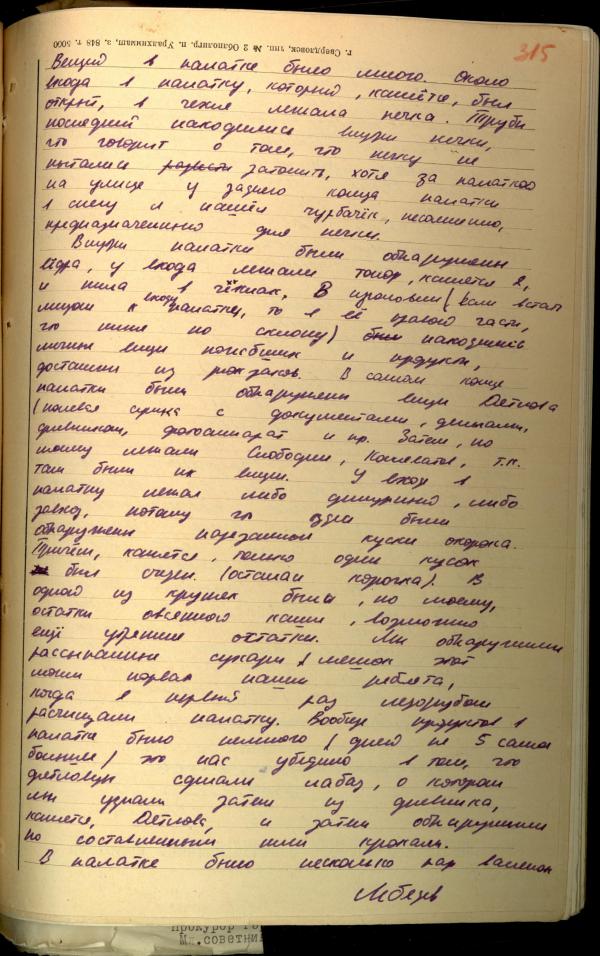 г. Свердловск, тип. № 2 Облполигр. п. Уралхиммаш, з. 848 т. 5000
315
Вещей в палатке было много. Около
входа в палатку, который, кажется, был
открыт, в чехле лежала печка. Трубы
последней находились внутри печки,
что говорит о том, что печку не
пытались развести затопить, хотя за палаткой
на улице у заднего конца палатки
в снегу я нашёл чурбачёк, несомненно,
предназначенный для печки.
Внутри палатки были обнаружены
вёдра, у входа лежали топор, кажется 2,
и пила в чехлах. В изголовьи (если встать
лицом к входу палатки, то в её правой части,
что ниже по склону) были находились
личные вещи погибших и продукты,
доставши из рюкзаков. В самом конце
палатки были обнаружены вещи Дятлова
(полевая сумка с документами, деньгами,
дневником, фотоаппарат и пр. Затем, по
моему лежали Слободин, Колеватов, т.к.
там были их вещи. У входа в
палатку лежал либо дежурный, либо
завхоз, потому что здесь были
обнаружены нарезанные куски окорока.
Причём, кажется, только один кусок
был съеден. (осталась корочка). В
одной из кружек были, по моему,
остатки овсянного каши, возможно
ещё утренние остатки. Мы обнаружили
рассыпанные сухари и мешок этот
нашли первая наши ребята,
когда в первый раз ледорубом
расчищали палатку. Вообще продуктов в
палатке было немного (дней на 5 самое
большее) это нас убедило в том, что
дятловцы сделали лабаз, о котором
мы узнали затем из дневника,
кажется, Дятлова, и затем обнаружили
по составленным ими крокам.
В палатке было несколько пар валенок
Лебедев
Прокурор
Мл.советни